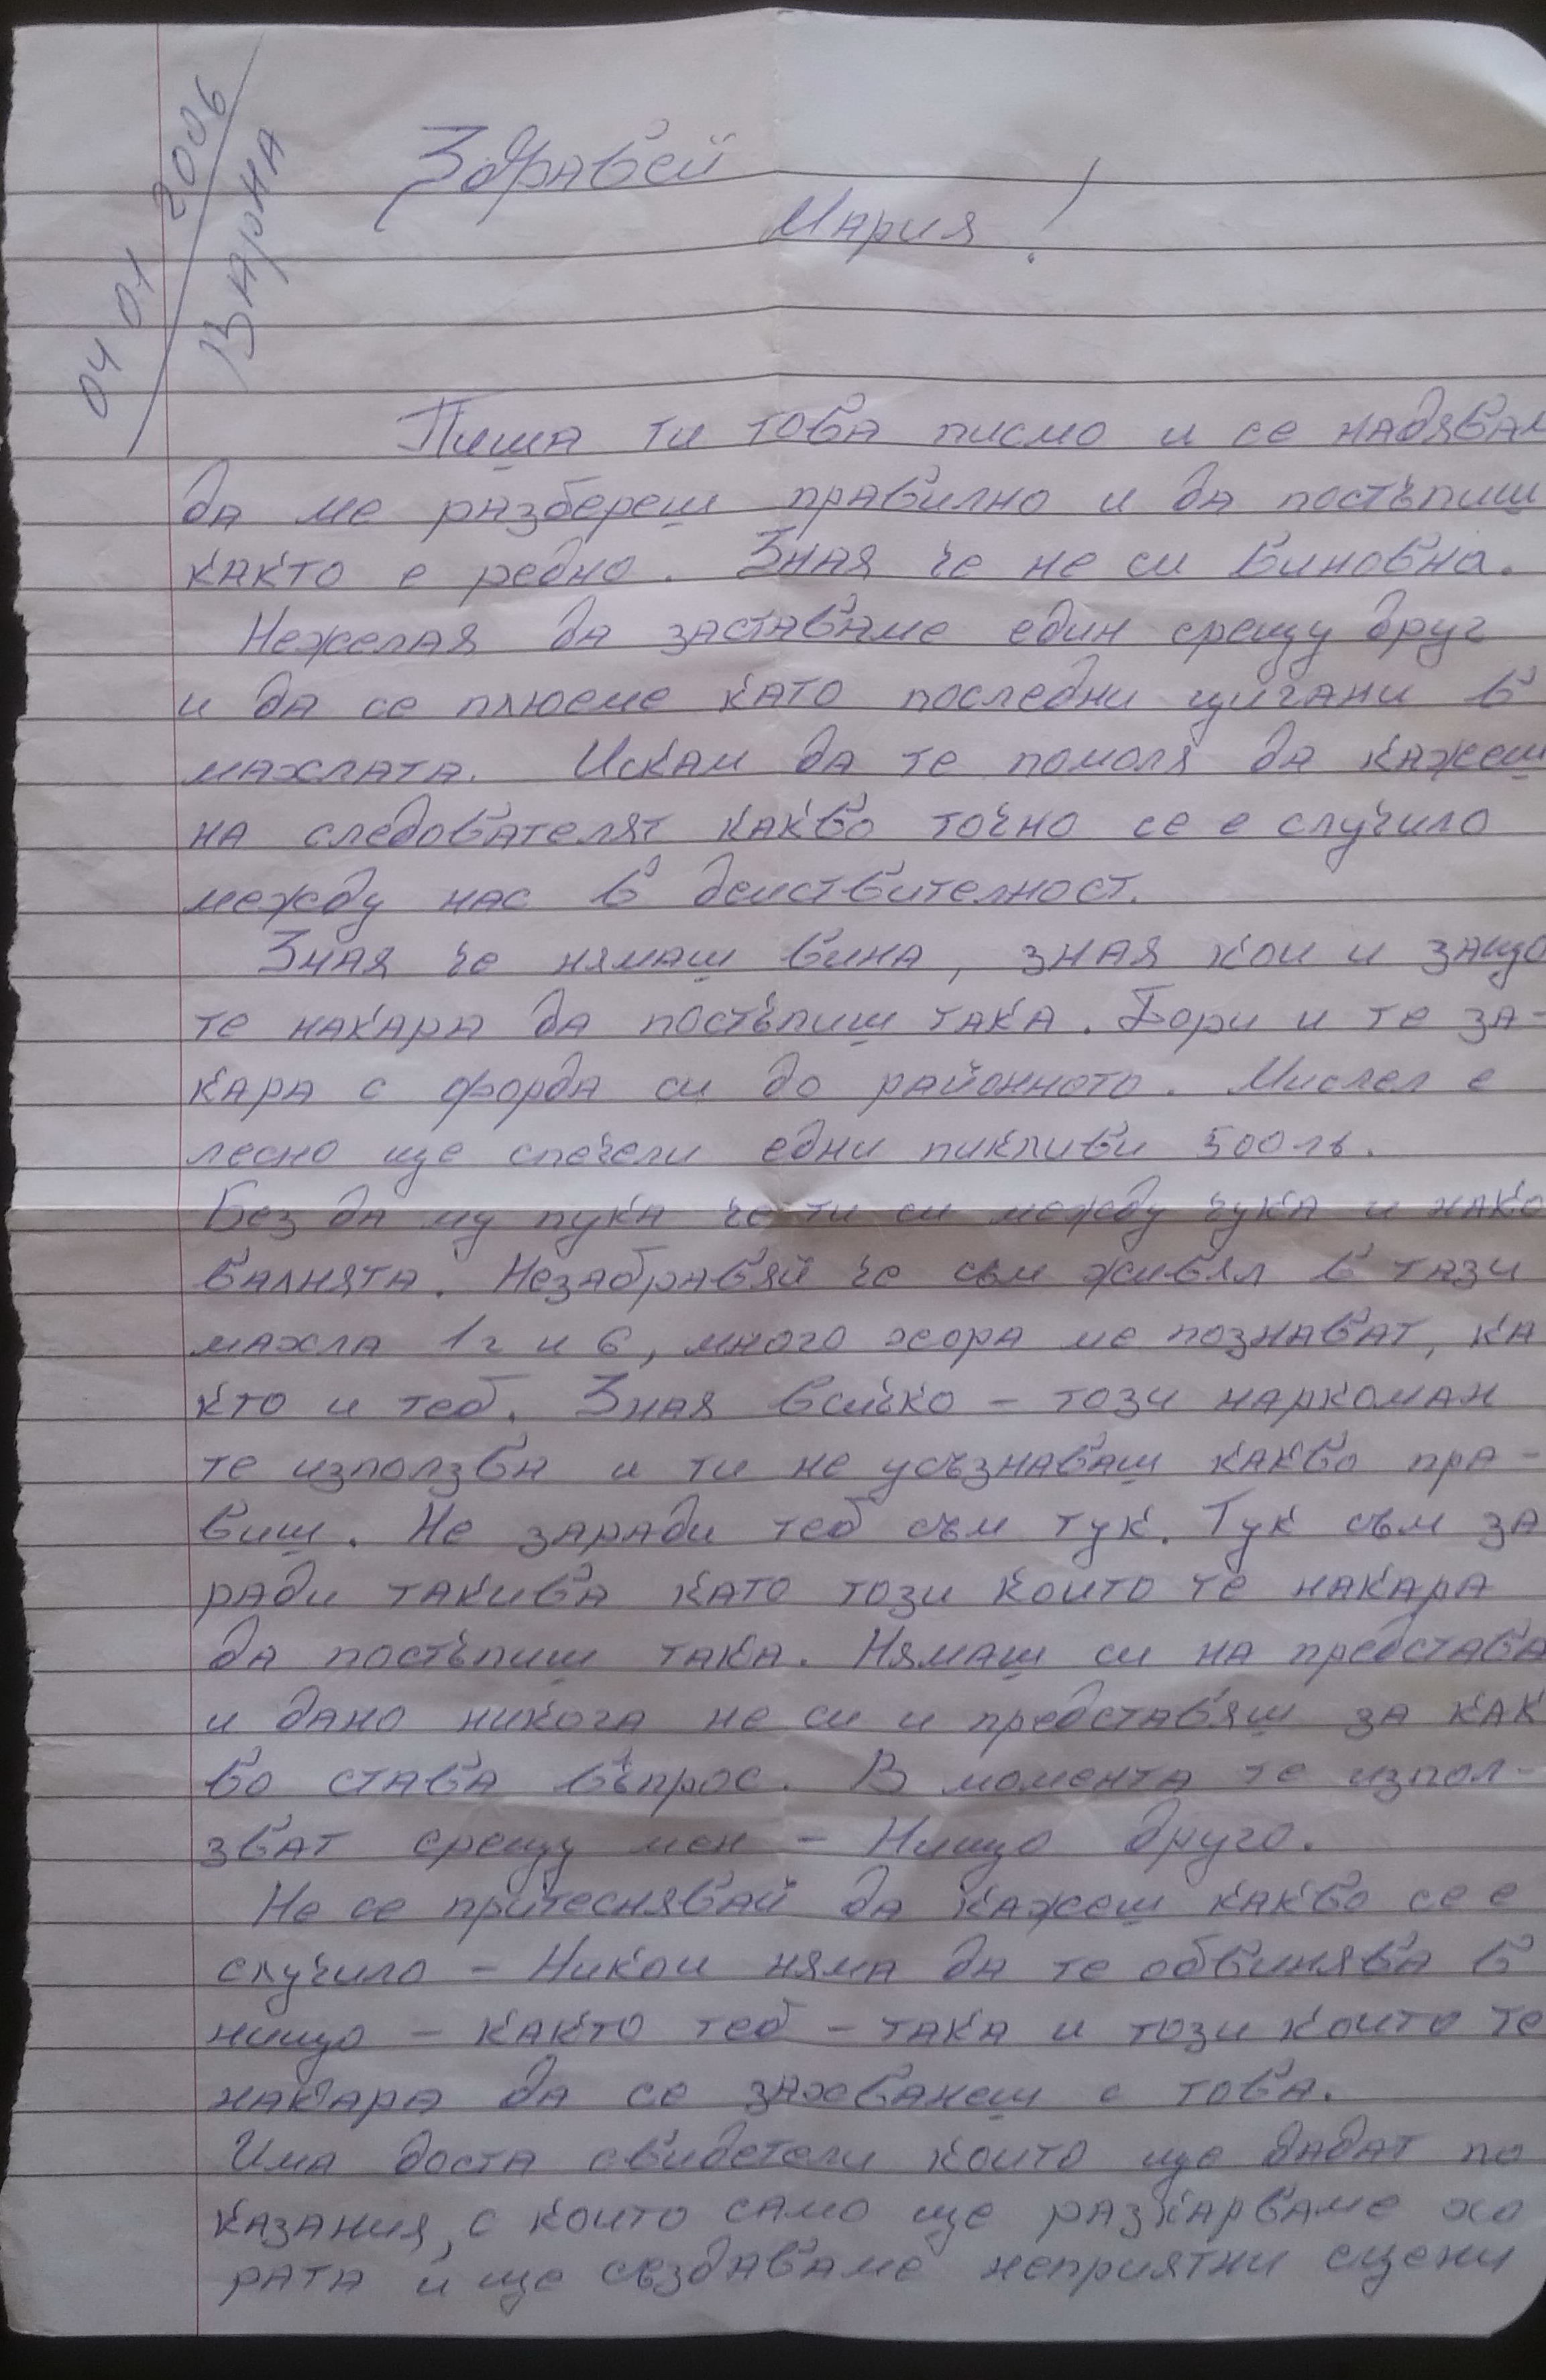 04 01 2006
Варна
Здравей
Мария!
Пиша ти това писмо и се надявам
да ме разбереш правилно и да постъпиш
както е редно. Зная че не си виновна.
Нежелая да заставаме един срещу друг
и да се плюеме като последни цигани в
махлата. Искам да те помоля да кажеш
на следователят какво точно се е случило
между нас в деиствителност.
Зная че нямаш вина, зная кои и защо
те накара да постъпиш така. Бори и те за-
кара с форда си до районното. Мислел е
лесно ще спечели едни пикливи 500 лв.
Без да му пука че ти си между чука и нако
валнята. Незабравяй че съм живял в тази
махла 1г и 6, много хора ме познават, ка
кто и теб. Зная всичко – този наркоман
те използва и ти не усъзнаваш какво пра-
виш. Не заради теб съм тук. Тук съм за
ради такива като този които те накара
да постъпиш така. Нямаш си на представа
и дано никога не си и представяш за как
во става въпрос. В момента те изпол-
зват срещу мен – Нищо друго.
Не се притеснявай да кажеш какво се е
случило – Никои няма да те обвинява в
нищо – както теб – така и този които те
накара да се захванеш с това.
Има доста свидетели които ще дадат по
казания, с които само ще разкарваме хо
рата и ще създаваме неприятни сцени